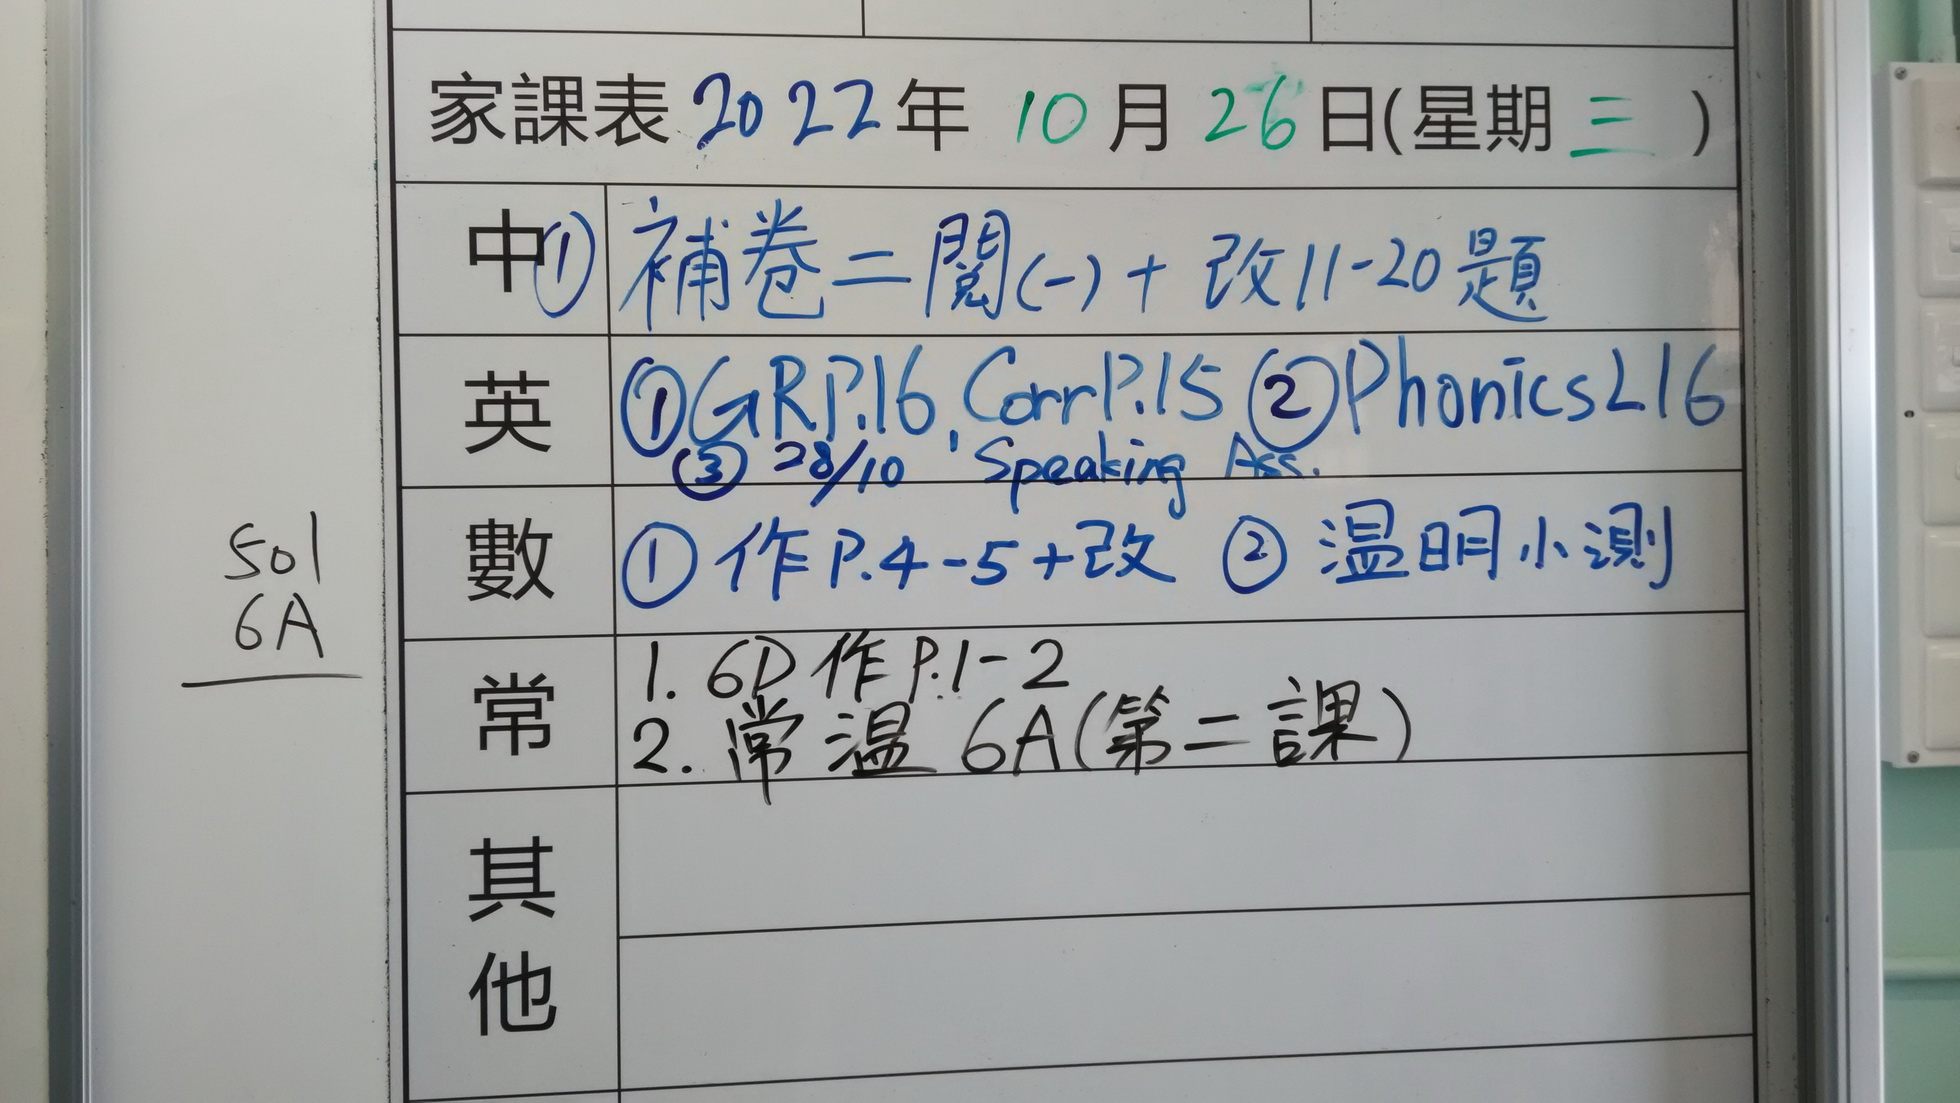 家課表 2022年 10月 26日(星期三)
中 ① 補卷二閱(一)+改11-20題
英 ①GR.P.16, Corr P.15 ②Phonics L16
③ 28/10 Speaking Ass.
數 ① 作P.4-5+改 ② 温明小測
501
6A
常 1. 6D作P.1-2
2. 常温 6A(第二課)
其他